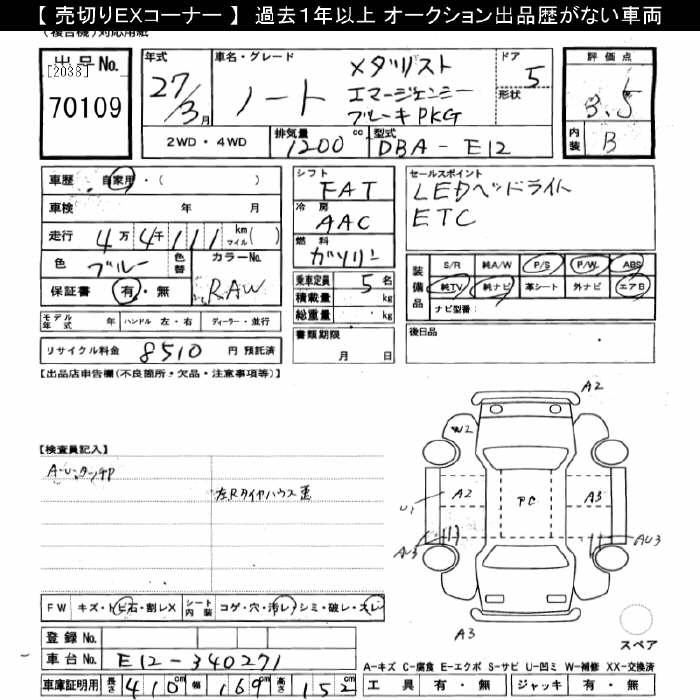 【 売切りEXコーナー 】 過去１年以上 オークション出品歴がない車両
(複合機)対応用紙
出品No.
[2038]
70109
年式
27/3月
車名・グレード
ノート
メダリスト
エマージェンシー
ブレーキPKG
ドア
形状
5
評価点
3.5
内装 B
2WD・4WD
排気量 1200 cc
型式 DBA-E12
車歴 自家用・( )
車検 年 月
走行 4万4千111 km マイル( )
色 ブルー 色替 カラーNo. RAW
保証書 有・無
シフト FAT
冷房 AAC
燃料 ガソリン
乗車定員 5 名
積載量 kg
総重量 kg
セールスポイント
LEDヘッドライト
ETC
装備品
S/R 純A/W P/S P/W ABS
純TV 純ナビ 革シート 外ナビ エアB
ナビ型番:
モデル年式 年 ハンドル 左・右 ディーラー・並行
書類期限
月 日
後日品
リサイクル料金 8510 円 預託済
【出品店申告欄(不良箇所・欠品・注意事項等)】
【検査員記入】
左Rタイヤハウス
A2
W2
A2
PC
A3
U1
AU3
AU3
A3
スペア
FW キズ・トビ石・割レX シート内装 コゲ・穴・汚レ・シミ・破レ・スレ
登録No.
車台No. E12-340271
車庫証明用 長さ 410cm 幅 169cm 高さ 152cm
A-キズ C-腐食 E-エクボ S-サビ U-凹ミ W-補修 XX-交換済
工具 有・無 ジャッキ 有・無